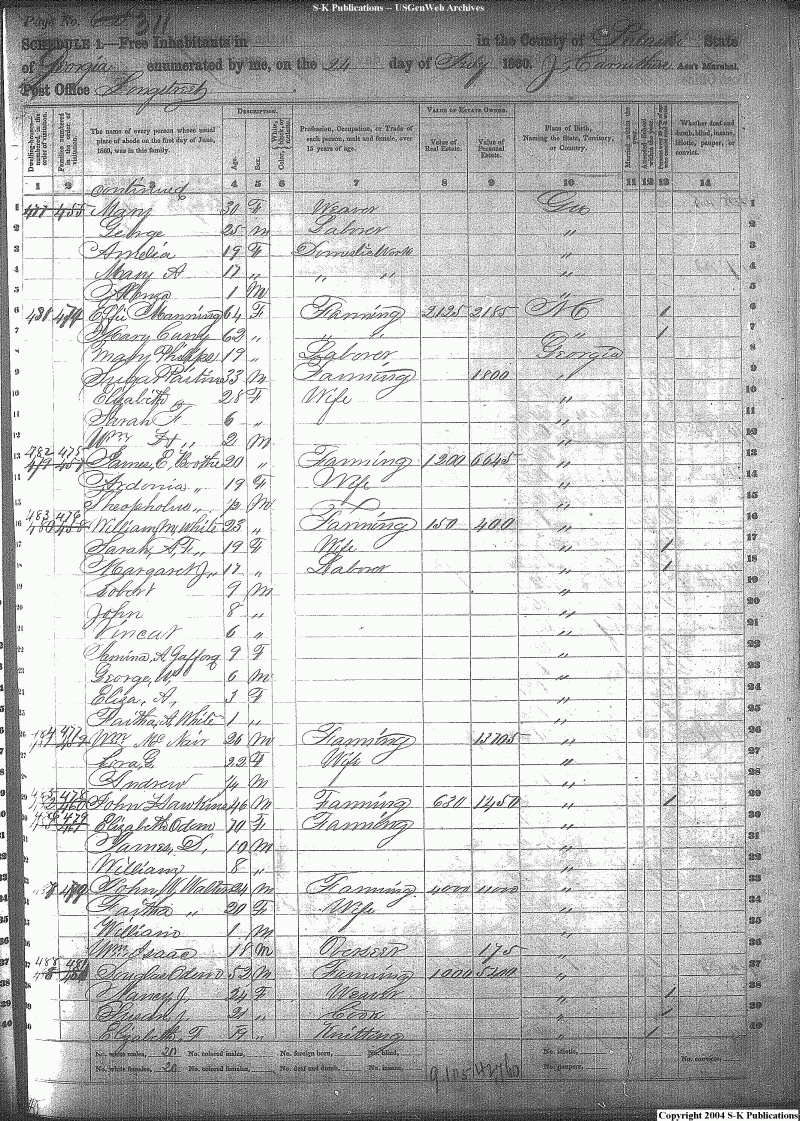 S-K Publications -- USGenWeb Archives
Page No. 311
SCHEDULE 1.—Free Inhabitants in in the County of Pulaski State
of Georgia enumerated by me, on the 24 day of July 1860. J. Carruthers Ass't Marshal.
Post Office Longstreet
Dwelling-houses—numbered in the order of visitation.
Families numbered in the order of visitation.
The name of every person whose usual place of abode on the first day of June, 1860, was in this family.
DESCRIPTION.
Age.
Sex.
Color, White, black, or mulatto.
Profession, Occupation, or Trade of each person, male and female, over 15 years of age.
VALUE OF ESTATE OWNED.
Value of Real Estate.
Value of Personal Estate.
Place of Birth, Naming the State, Territory, or Country.
Married within the year.
Attended School within the year.
Whether deaf and dumb, blind, insane, idiotic, pauper, or convict.
1 2 3 4 5 6 7 8 9 10 11 12 13 14
continued
1 477 455 Mary 30 F Weaver Geo 1
2 George 25 m Laborer " 2
3 Amelia 19 F Domestic Work " 3
4 Mary A 17 " " " " 4
5 1 M " 5
6 481 474 Effie Manning 64 F Farming 2125 2185 NC 1 6
7 Mary Curry 62 " " " " 1 7
8 Mary Phillips 19 " Laborer Georgia 8
9 33 M Farming 1800 " 9
10 Elizabeth 28 F Wife " 10
11 Sarah F 6 " " 11
12 Wm H " 2 M " 12
13 482 475 James, E, 20 " Farming 1200 6645 " 13
14 Ardonia " 19 F Wife " 14
15 Theopholus " M " 15
16 483 476 480 458 William M White 23 " Farming 150 400 " 16
17 Sarah, A. F. " 19 F Wife " 1 17
18 Margaret J, " 17 " Laborer " 1 18
19 Robert 9 M " 19
20 John 8 " " 20
21 Vincent 6 " " 21
22 A, 9 F " 22
23 George, W, 6 m " 23
24 Eliza, A, 3 F " 24
25 Faitha, A, White 1 " " 25
26 Wm McNair 26 M Farming 13705 " 26
27 22 F Wife " 27
28 Andrew M " 28
29 478 John Hawkins 46 M Farming 630 1450 " 1 29
30 479 Elizabeth Odom 70 F Farming " 30
31 James, D, 10 m " 31
32 William 8 " " 32
33 480 John W Walters 24 m Farming 4000 4000 " 33
34 Faitha " 20 F Wife " 34
35 William 1 M " 35
36 Wm Isaac 18 M Overseer 175 " 36
37 488 481 Douglas Odom 52 M Farming 1000 5400 " 37
38 Nancy J. 24 F Weaver " 1 38
39 Susan 21 " Cook " 1 39
40 Elizabeth, F 19 " Knitting " 1 40
No. white males, 20 No. colored males, No. foreign born, No. blind, No. idiotic,
No. white females, 20 No. colored females, No. deaf and dumb, No. insane, 9105 42760 No. paupers, No. convicts,
Copyright 2004 S-K Publications